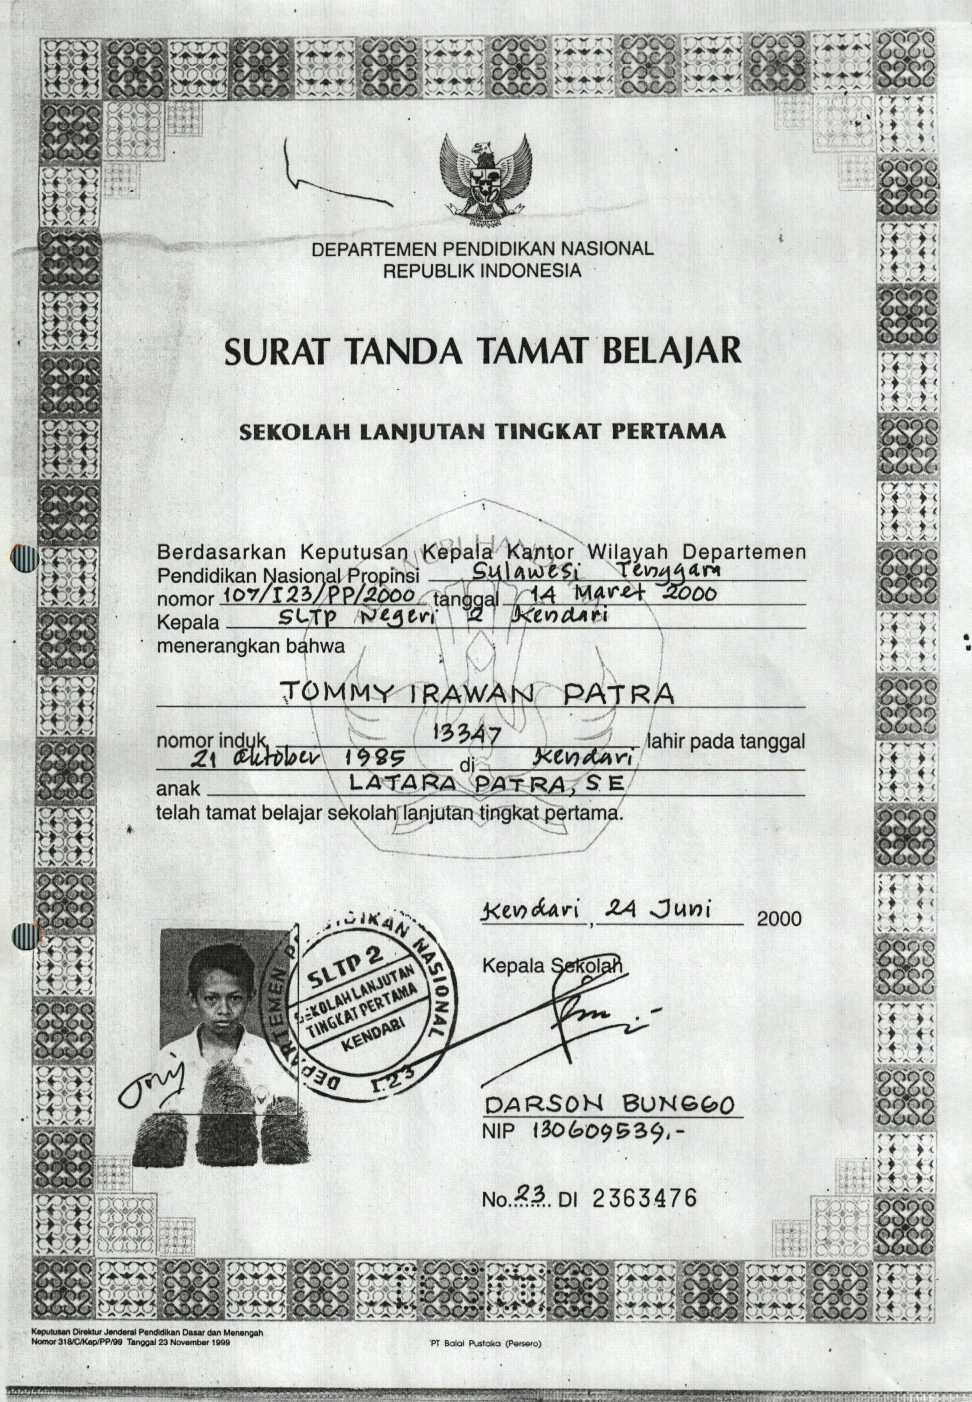 DEPARTEMEN PENDIDIKAN NASIONAL
REPUBLIK INDONESIA
SURAT TANDA TAMAT BELAJAR
SEKOLAH LANJUTAN TINGKAT PERTAMA
Berdasarkan Keputusan Kepala Kantor Wilayah Departemen
Pendidikan Nasional Propinsi Sulawesi Tenggara
nomor 107/I23/PP/2000 tanggal 14 Maret 2000
Kepala SLTP Negeri 2 Kendari
menerangkan bahwa
TOMMY IRAWAN PATRA
nomor induk 13347 lahir pada tanggal
21 Oktober 1985 di Kendari
anak LATARA PATRA, SE
telah tamat belajar sekolah lanjutan tingkat pertama.
Kendari, 24 Juni 2000
Kepala Sekolah
DEPARTEMEN PENDIDIKAN NASIONAL
SLTP 2
SEKOLAH LANJUTAN
TINGKAT PERTAMA
KENDARI
I.23
DARSON BUNGGO
NIP 130609539.-
No. 23 DI 2363476
Keputusan Direktur Jenderal Pendidikan Dasar dan Menengah
Nomor 318/C/Kep/PP/99 Tanggal 23 November 1999
PT Balai Pustaka (Persero)